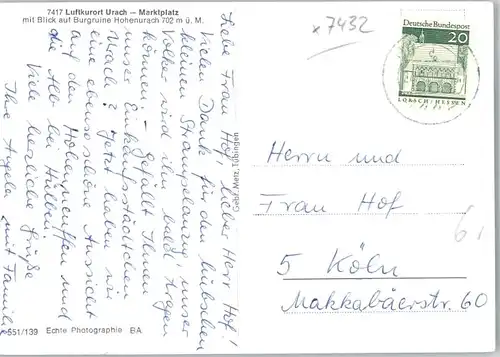 7417 Luftkurort Urach — Marktplatz
mit Blick auf Burgruine Hohenurach 702 m ü. M.
x 7432
Deutsche Bundespost
20
LORSCH / HESSEN
Liebe Frau Hof, lieber Herr Hof!
Vielen Dank für den hübschen
kleinen Strampelanzug, unser
Volker wird ihn bald tragen
können. - Gefällt Ihnen
unser Einkaufsstädtchen
Urach? Jetzt haben wir
eine ebenso schöne Aussicht
auf den Hohenneuffen und
die Alb bei Hülben!
Viele herzliche Grüße
Ihre Angela mit Familie
Gebr. Metz, Tübingen
Herrn und
Frau Hof
5 Köln
Makkabäerstr. 60
6,
551/139 Echte Photographie BA